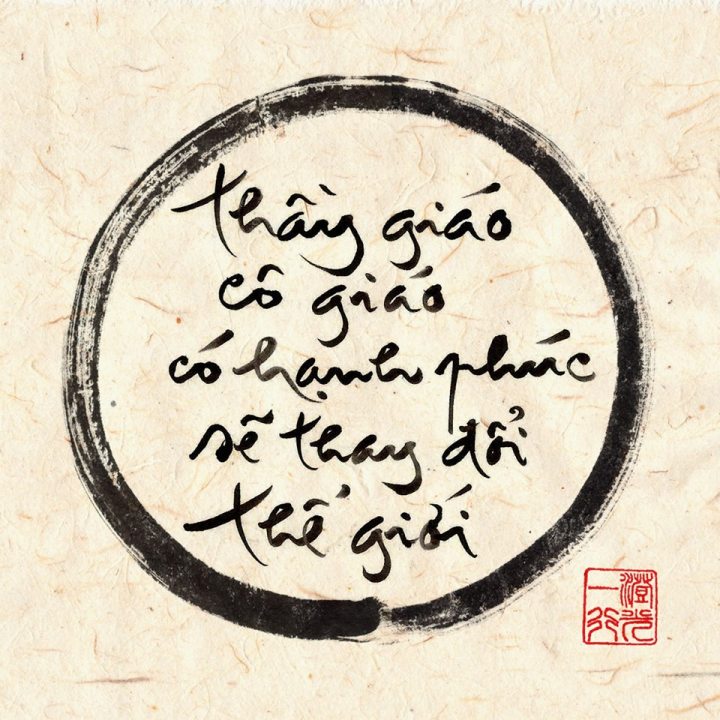 thầy giáo
cô giáo
có hạnh phúc
sẽ thay đổi
thế giới
澄光
一行